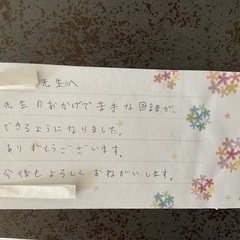 先生へ
先生のおかげで苦手な国語が、
できるようになりました。
ありがとうございます。
今後もよろしくおねがいします。